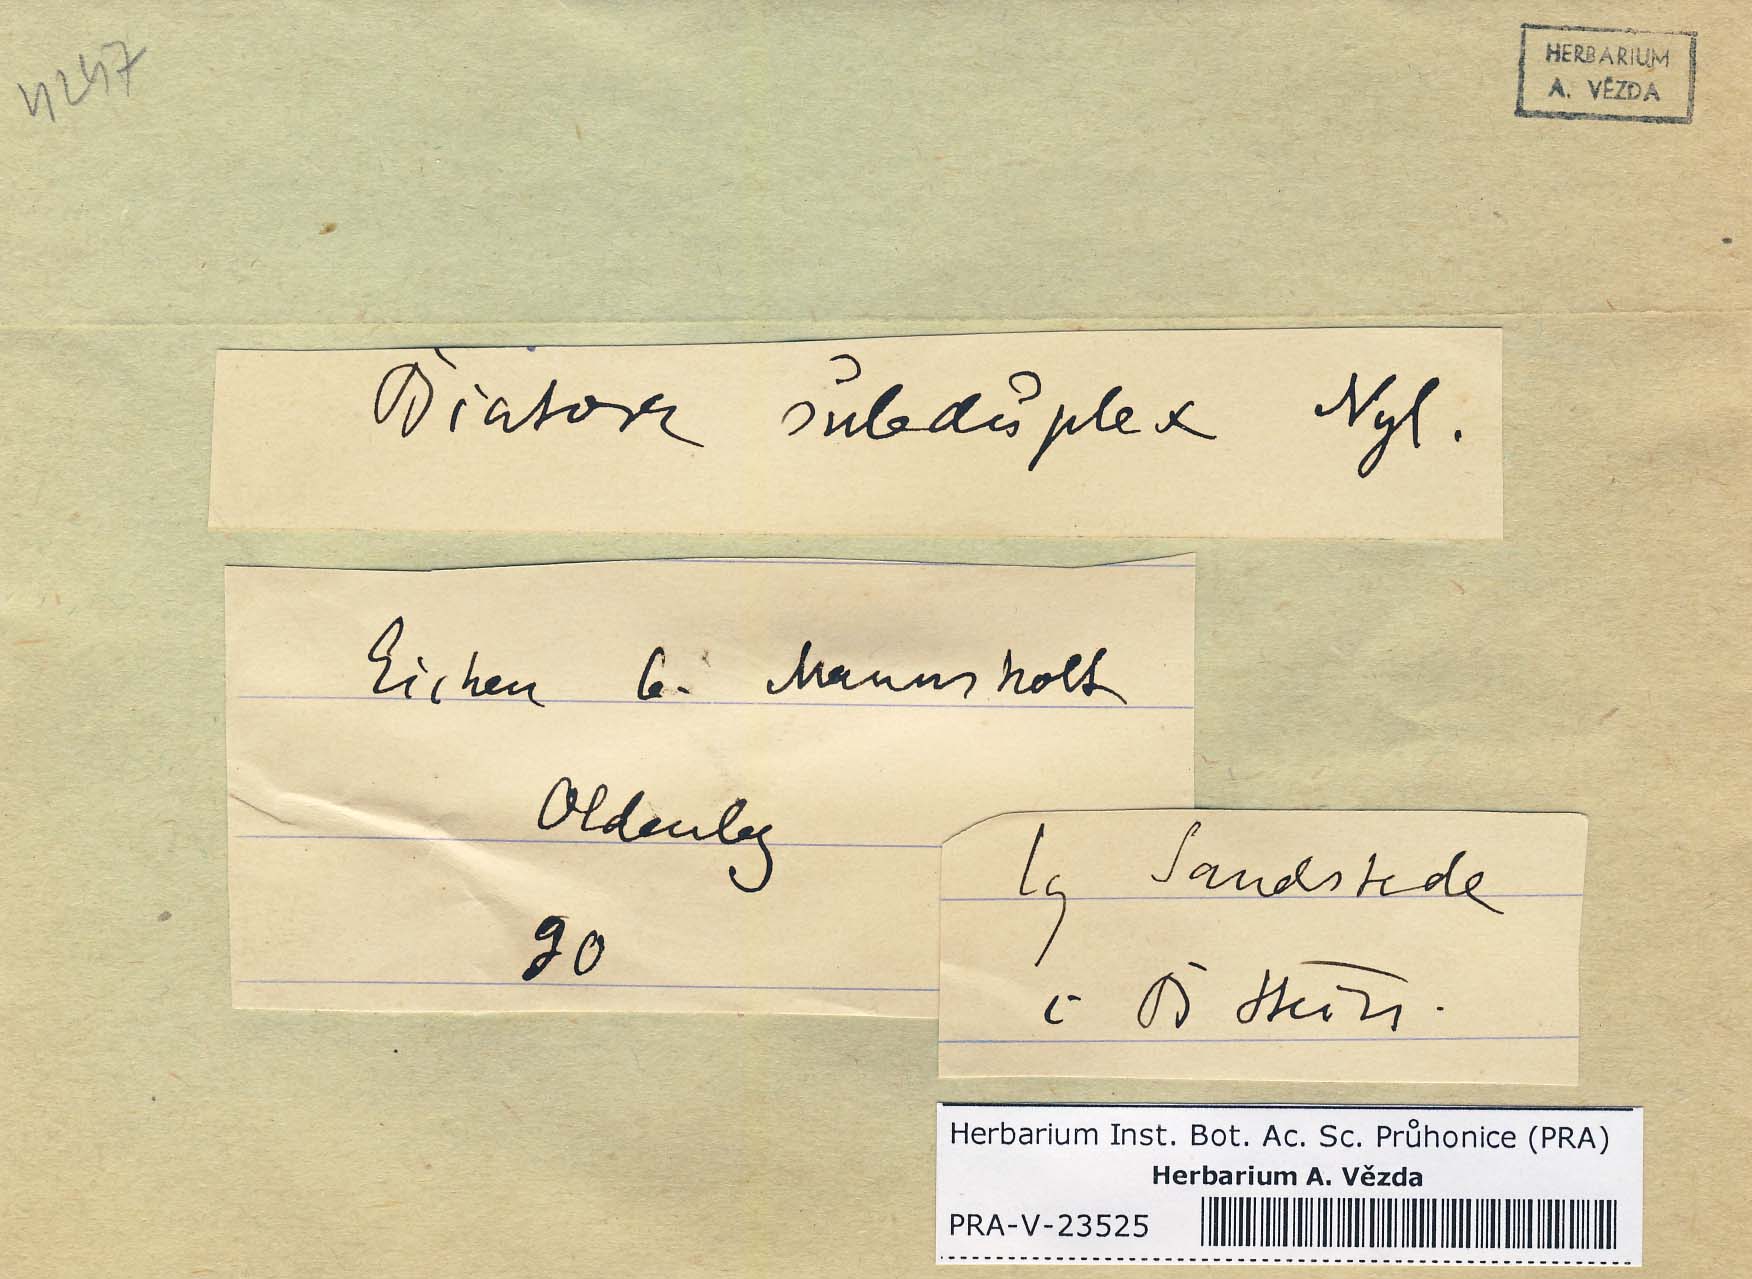 4247
HERBARIUM
A. VĚZDA
Biatora subduplex Nyl.
Eichen b. Mannsholt
Oldenbg
90
lg Sandstede
Herbarium Inst. Bot. Ac. Sc. Průhonice (PRA)
Herbarium A. Vězda
PRA-V-23525